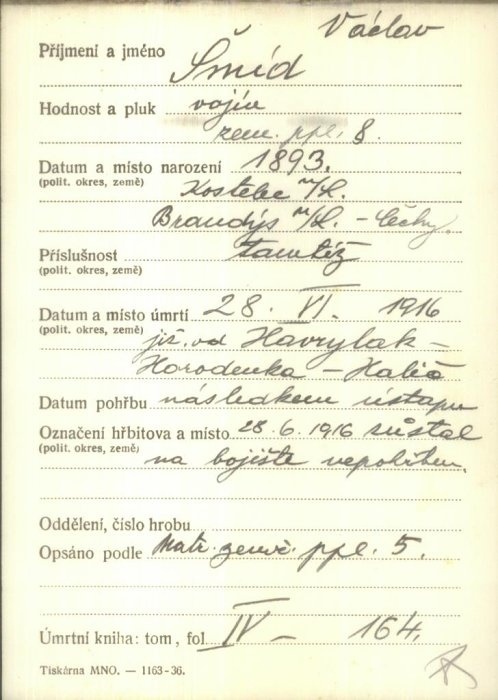 Václav
Příjmení a jméno Šmíd
Hodnost a pluk vojín
zem. ppl. 8.
Datum a místo narození 1893.
(polit. okres, země) Kostelec n/L.
Brandýs n/L. - Čechy.
Příslušnost tamtéž
(polit. okres, země)
Datum a místo úmrtí 28. VI. 1916
(polit. okres, země) již. od Havrylak -
Horodenka - Halič
Datum pohřbu následkem ústupu
Označení hřbitova a místo 28. 6. 1916 zůstal
(polit. okres, země) na bojišti nepohřben.
Oddělení, číslo hrobu
Opsáno podle Matr. zemř. ppl. 5.
Úmrtní kniha: tom, fol. IV - 164.
Tiskárna MNO. — 1163-36.